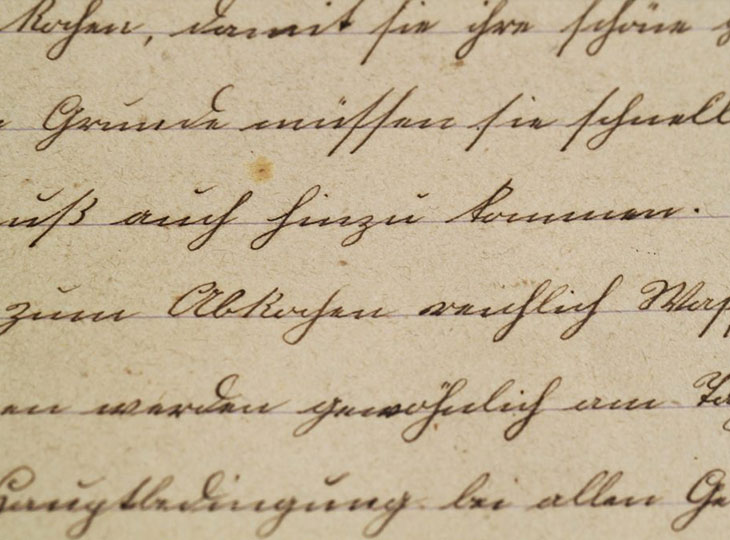 kochen, damit sie ihre schöne
Grunde müssen sie schnell
uß auch hinzu kommen.
zum Abkochen reichlich Wass
en werden gewöhnlich am Ta
Hauptbedingung bei allen Ge